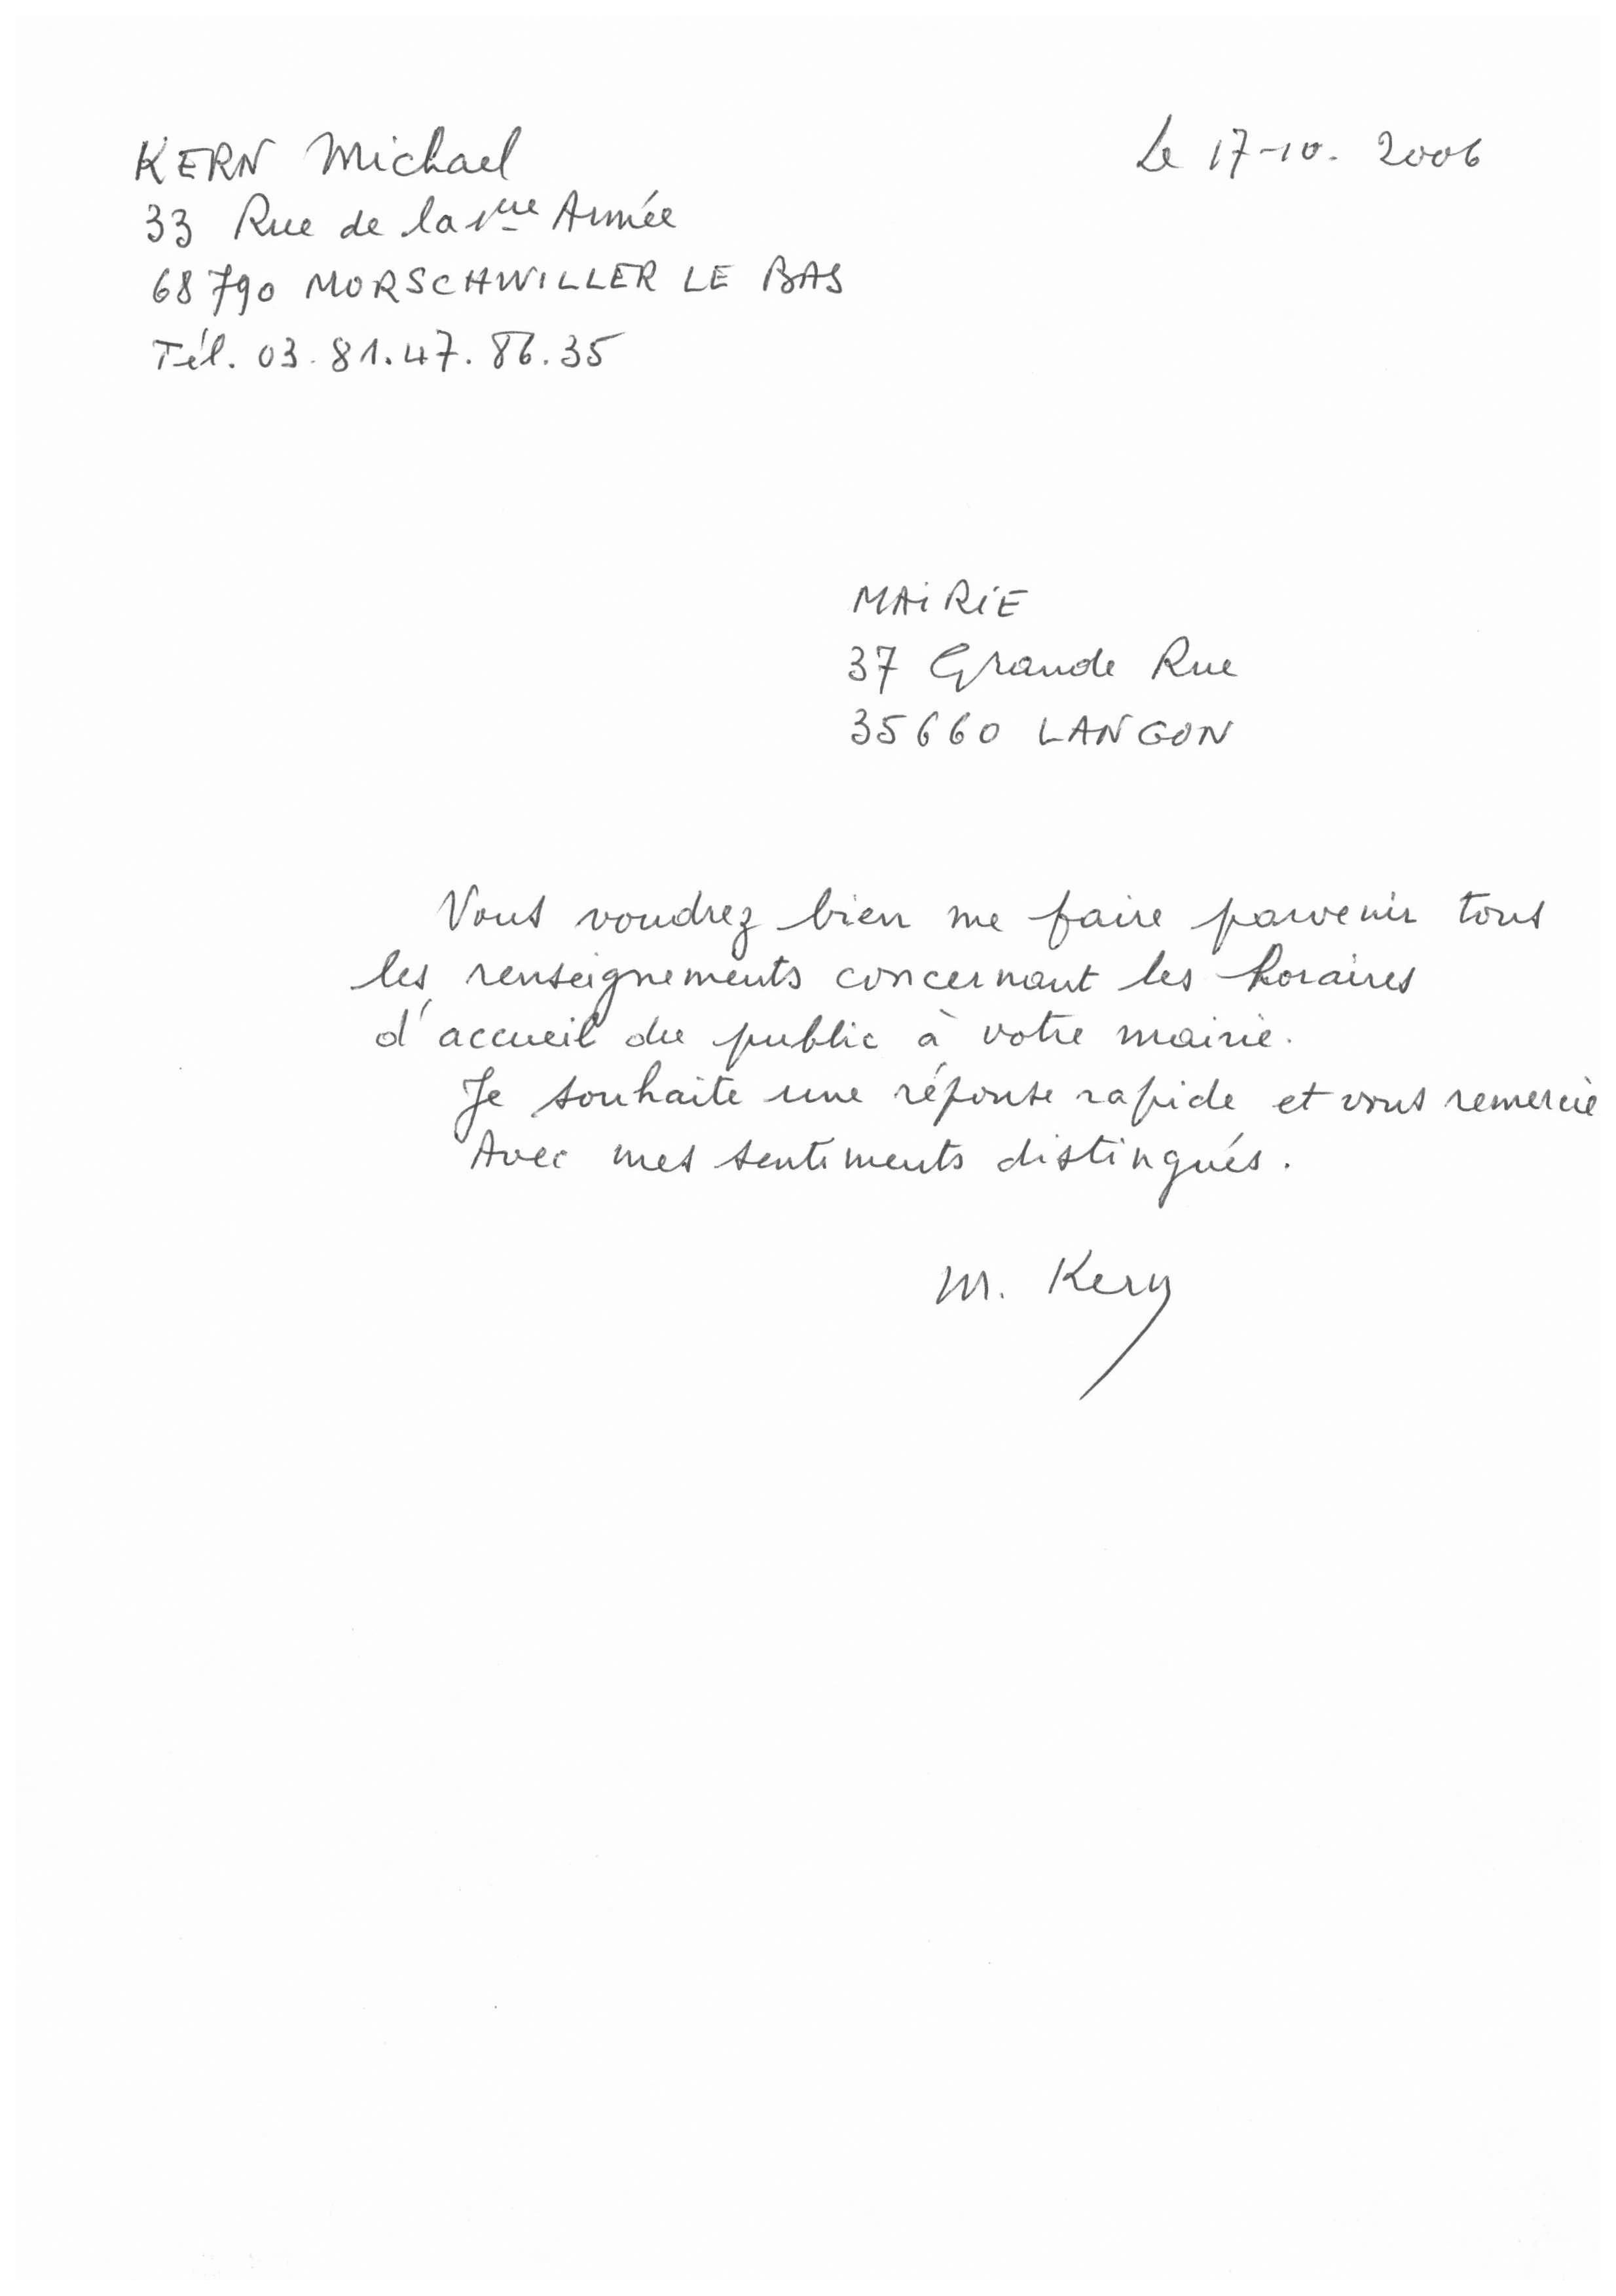 KERN Michael
Le 17-10. 2006
33 Rue de la 1ère Armée
68790 MORSCHWILLER LE BAS
Tél. 03.81.47.86.35
MAiRiE
37 Grande Rue
35660 LANGON
Vous voudrez bien me faire parvenir tous
les renseignements concernant les horaires
d'accueil du public à votre mairie.
Je souhaite une réponse rapide et vous remercie
Avec mes sentiments distingués.
M. Kern